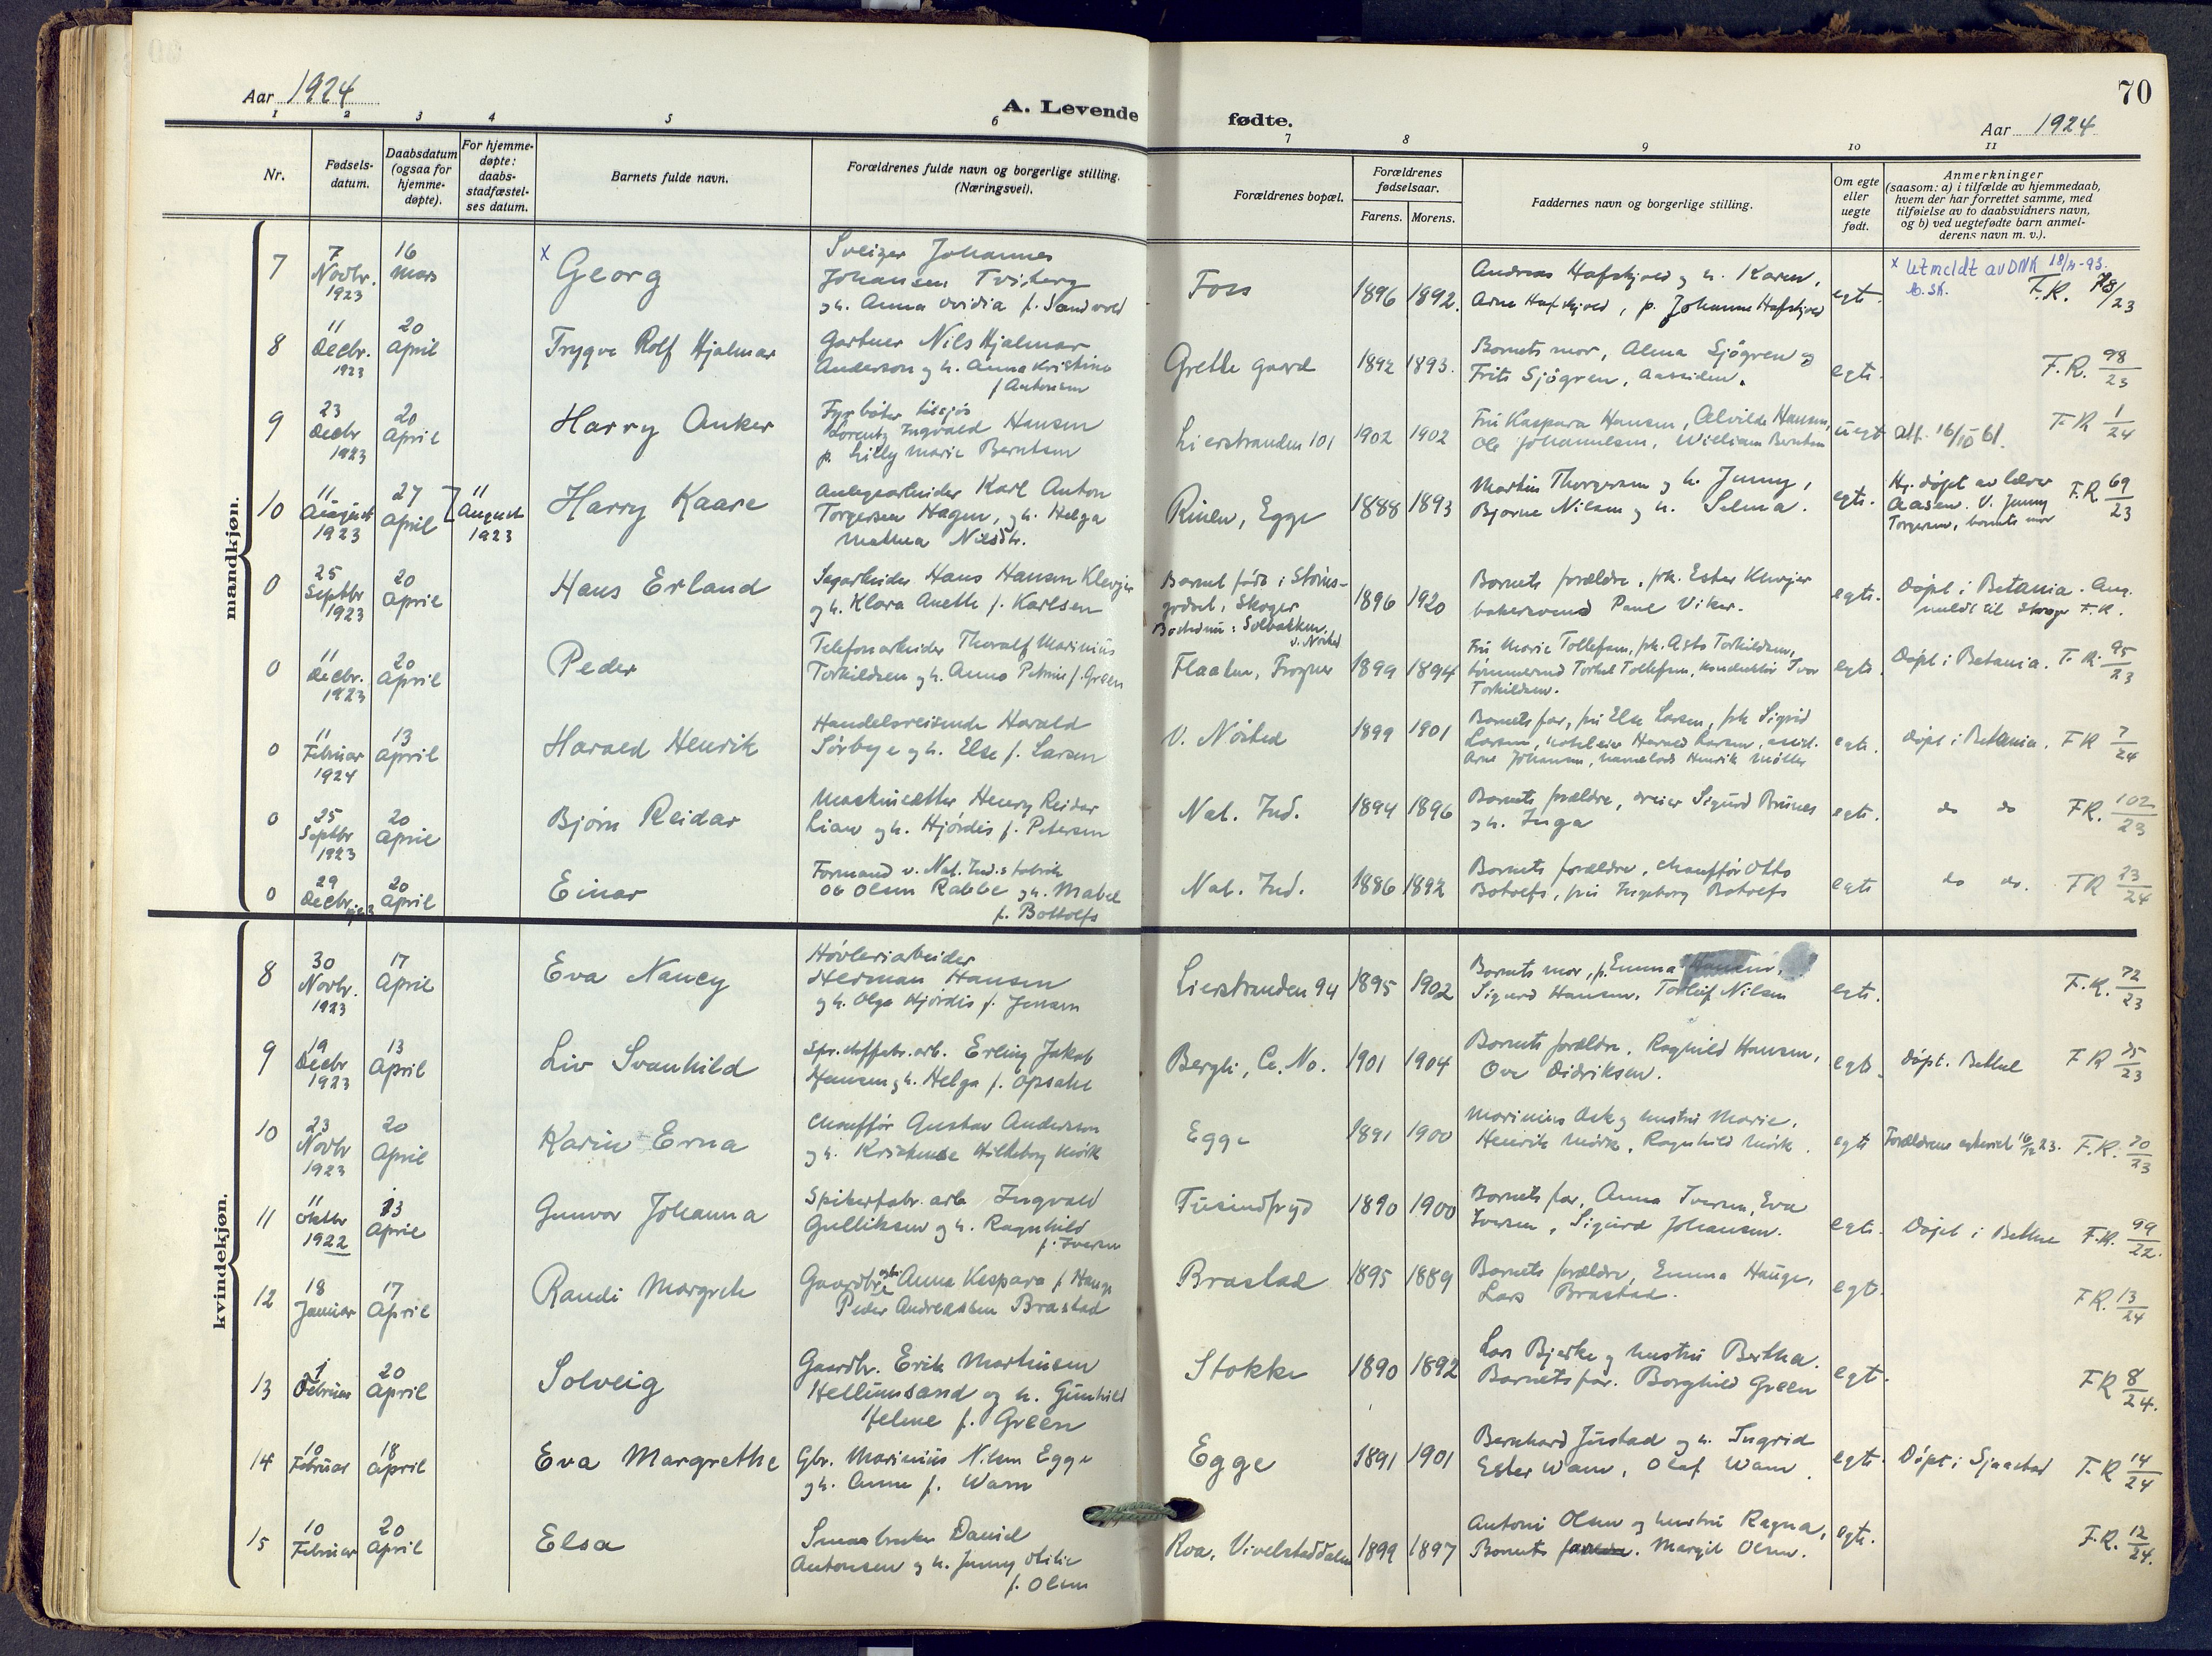 70
Aar 1924
A. Levende fødte.
Aar 1924
1 2 3 4 5 6 7 8 9 10 11
Nr.
Fødsels-
datum.
Daabsdatum
(ogsaa for
hjemme-
døpte).
For hjemme-
døpte:
daabs-
stadfæstel-
ses datum.
Barnets fulde navn.
Forældrenes fulde navn og borgerlige stilling.
(Næringsvei).
Forældrenes bopæl.
Forældrenes
fødselsaar.
Farens. Morens.
Faddernes navn og borgerlige stilling.
Om egte
eller
uegte
født.
Anmerkninger
(saasom: a) i tilfælde av hjemmedaab,
hvem der har forrettet samme, med
tilføielse av to daabsvidners navn,
og b) ved uegtefødte barn anmel-
derens navn m. v.).
mandkjøn.
7
7
Novbr.
1923
16
Mars
x Georg
Sveizer Johannes
Johansen Tviberg
og h. Anna Ovidia f. Sandvold
Foss
1896 1892.
Andreas Hafskjold og h. Karen,
Arne Hafskjold, p. Johanne Hafskjold
egt.
x Utmeldt av DNK
F.R. 78/23
8
11
Decbr.
1923
20
April
Trygve Rolf Hjalmar
Gartner Nils Hjalmar
Anderson og h. Anna Kristine
f. Antonsen
Grette gaard
1892 1893.
Barnets mor, Alma Sjögren og
Frits Sjögren, Aassiden.
egte.
F.R. 98/23
9
23
Decbr
1923
20
April
Harry Anker
Fyrbøter tilsjøs
Lorentz Ingvald Hansen
p. Lilly Marie Berntsen
Lierstranden 101
1902 1902
Fru Kaspara Hansen, Alvilde Hansen,
Ole Johannesen, William Berntsen
uegt
Att. 16/10 61.
F.R 1/24
10
11
August
1923
27
April
11
August
1923
Harry Kaare
Anlegsarbeider Karl Anton
Torgersen Hagen, og h. Helga
Mathea Nilsdtr.
Rinen, Egge
1888 1893
Martin Thorgersen og h. Jenny,
Bjarne Nilsen og h. Selma.
egte.
Hj. døpt av lærer
Aasen. V. Jenny
Torgersen, barnets mor
F.R 69/23
0
25
Septbr
1923
20
April
Hans Erland
Sagarbeider Hans Hansen Klevjer
og h. Klara Anette f. Karlsen
Barnet født i Støvis-
godset, Skoger
Bostedet: Solbakken
v. Nøsted
1896 1920
Barnets forældre, frk. Ester Klevjer
bakersvend Paul Viker.
egte.
Døpt i Betania. Anm.
meldt til Skoger F.R.
0
11
Decbr.
1923
20
April
Peder
Telefonarbeider Thoralf Marinius
Torkildsen og h. Anna Petrine f. Green
Flaaten, Frogner
1899 1894
Fru Marie Tollefsen, frk. Asta Torkildsen,
tømmermd Torkel Tollefsen, konduktør Ivar
Torkildsen.
egte.
Døpt i Betania. F.R. 95/23
0
11
Februar
1924
13
April
Harald Henrik
Handelsreisende Harald
Sørbye og h. Else f. Larsen
V. Nøsted
1899 1901
Barnets far, fru Else Larsen, frk Sigrid
Larsen, hoteleier Harald Larsen, assist.
Arne Johansen, Henrik Møller
egte.
Døpt i Betania. F.R 7/24
0
25
Septbr
1923
20
April
Bjørn Reidar
Maskinsætter Henry Reidar
Lian og h. Hjørdis f. Petersen
Nat. Ind.
1894 1896
Barnets forældre, dreier Sigurd Brunes
og h. Inga
egte.
do do FR. 102/23
0
29
Decbr.
1923
20
April
Einar
Formand v. Nat. Ind.s fabrik
Ole Olsen Rabbe og h. Mabel
f. Bottolfs
Nat. Ind.
1886 1892
Barnets forældre, chauffør Otto
Botolfs, fru Ingeborg Botolfs
egte
do do. FR 23/24
kvindekjøn.
8
30
Novbr.
1923
17
April
Eva Nancy
Høvleriarbeider
Herman Hansen
og h. Olga Hjørdis f. Jensen
Lierstranden 94
1895 1902
Barnets mor, p. Emma Hansen,
Sigurd Hansen, Torleif Nilsen
egte.
F.R. 72/23
9
19
Decbr
1923
13
April
Liv Svanhild
Spr. stoffabr. arb. Erling Jakob
Hansen og h. Helga f. Opsahl
Bergli, Ce. No.
1901 1904
Barnets forældre, Ragnhild Hansen,
Ove Didriksen.
egte.
døpt. Bethel F.R 75/23
10
23
Novbr
1923
20
April
Karin Erna
Chauffør Gustav Andersen
og h. Kristense Hilleborg Mørk
Egge
1891 1900
Marinius Ask og hustru Marie,
Henrik Mørk, Ragnhild Mørk.
egte
Forældrene egteviet 16/12 23. F.R. 70/23
11
11
Oktbr
1922
13
April
Gunvor Johanna
Spikerfabr. arb Ingvald
Gulliksen og h. Ragnhild
f. Iversen
Tusindfryd
1890 1900
Barnets far, Anna Iversen, Eva
Iversen, Sigurd Johansen.
egte.
Døpt i Bethel F.R. 99/22.
12
18
Januar
17
April
Randi Margrete
Gaardbr. og h. Anna Kaspara f Hauge
Peder Andreassen Brastad
Brastad
1895 1889
Barnets forældre, Emma Hauge,
Lars Brastad.
egte.
F.R. 13/24
13
1
Februar
20
April
Solveig
Gaardbr. Erik Martinsen
Hellumsand og h. Gunhild
Helene f. Green
Stokke
1890 1892
Lars Bjerke og hustru Bertha.
Barnets far. Borghild Green
egte.
F.R 8/24.
14
10
Februar
18
April
Eva Margrethe
Gbr. Marinius Nilsen Egge
og h. Anne f. Warn
Egge
1891 1901
Bernhard Justad og h. Ingrid
Ester Warn, Olaf Warn.
egte.
Døpt i Sjaastad F.R 14/24
15
10
Februar
20
April
Elsa
Smaabruker Daniel
Antonsen og h. Jenny Otilie
f. Olsen
Roa, Vivelstaddalen
1899 1897
Antoni Olsen og hustru Ragna,
Barnets forældre. Margit Olsen.
egte.
F.R. 12/24.